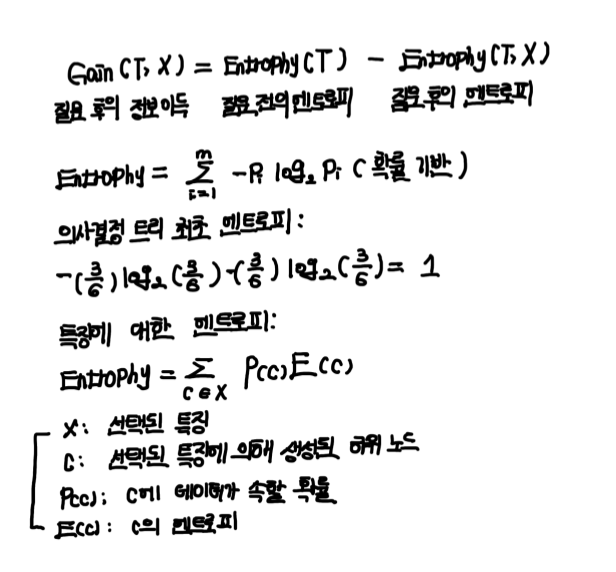 Gain(T, X) = Entrophy(T) - Entrophy(T, X)
질문 후의 정보이득 질문 전의 엔트로피 질문 후의 엔트로피
Entrophy = m Σ i=1 -Pi log₂ Pi (확률 기반)
의사결정 트리 최초 엔트로피:
-(3/6) log₂(3/6) -(3/6) log₂(3/6) = 1
특징에 대한 엔트로피:
Entrophy = Σ c∈X P(c)E(c)
X: 선택된 특징
C: 선택된 특징에 의해 생성된 하위 노드
P(c): C에 데이터가 속할 확률
E(c): C의 엔트로피